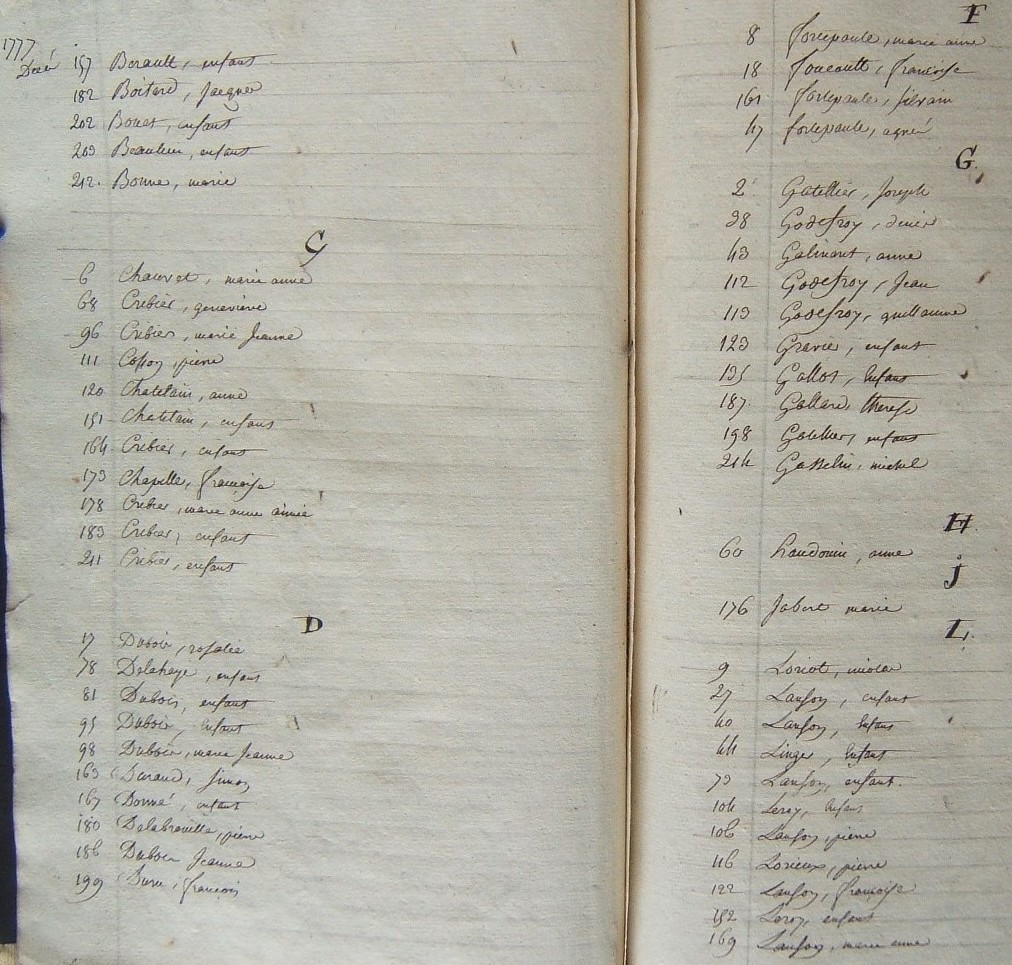 1777
Décè
157 Berault, enfant
182 Boitard, Jacques
202 Bouet, enfant
203 Beaulieu, enfant
212. Bonne, marie
C
6 Chauvet, marie anne
68 Crebier, geneviève
96 Crebier, marie Jeanne
111 Cosson, pierre
120 Chatelain, anne
151 Chatelain, enfant
164 Crebier, enfant
173 Chapelle, françoise
178 Crebier, marie anne aimée
183 Crebier, enfant
211 Crebier, enfant
D
17 Dubois, rosalie
78 Delahaye, enfant
81 Dubois, enfant
95 Dubois, Enfant
98 Dubois, marie Jeanne
163 Durand, simon
167 Donné, enfant
180 Delabrouille, pierre
186 Dubois Jeanne
199 Duru, françois
F
8 fortepaule, marie anne
18 foucault, françoise
161 fortepaule, silvain
47 fortepaule, agnès
G.
2 Gatellier, Joseph
38 Godefroy, denis
43 Galinant, anne
112 Godefroy, Jean
113 Godefroy, guillaume
123 Gravier, enfant
135 Gallot, Enfant
187 Gallard, therese
198 Gatellier, enfant
214 Gasselin, michel
H.
60 handouin, anne
j
176 Jabert marie
L.
9 Loriot, nicolas
27 Lanson, enfant
40 Lanson, Enfant
44 Linger, Enfant
73 Lanson, enfant.
104 Leroy, Enfant
106 Lanson, pierre
116 Lorieux, pierre
122 Lanson, françoise
152 Leroy, enfant
169 Lanson, marie anne